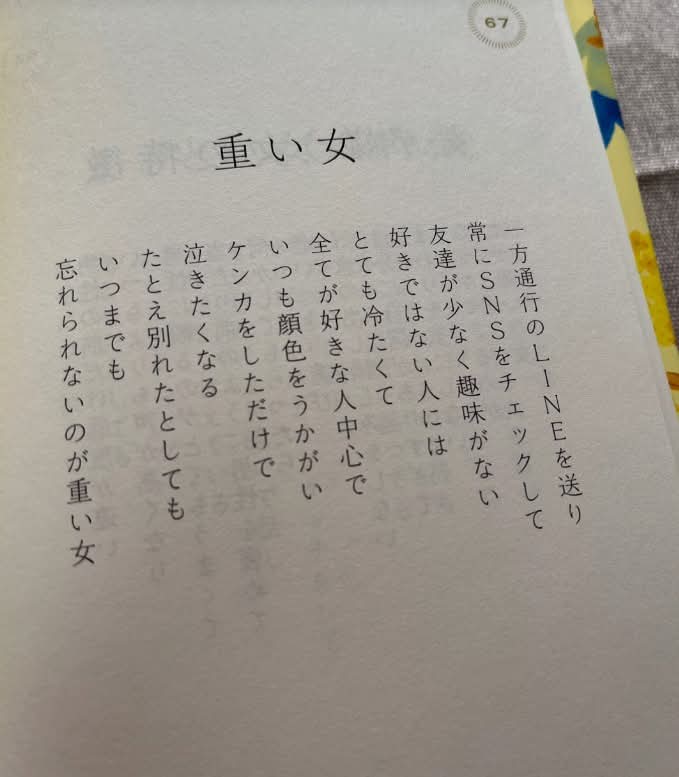 67
重い女
一方通行のLINEを送り
常にSNSをチェックして
友達が少なく趣味がない
好きではない人には
とても冷たくて
全てが好きな人中心で
いつも顔色をうかがい
ケンカをしただけで
泣きたくなる
たとえ別れたとしても
いつまでも
忘れられないのが重い女